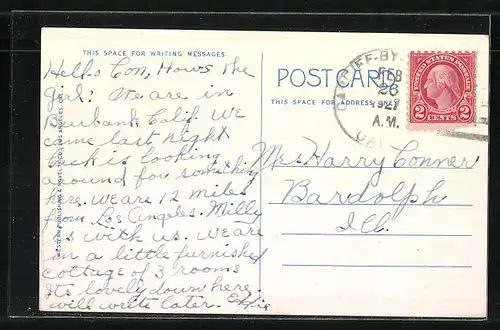 THIS SPACE FOR WRITING MESSAGES
Hello Con, Hows the
girl? We are in
Burbank Calif. We
came last night
back is looking
around for something
here. we are 12 miles
from Los Angeles. Milly
is with us. we are
in a little furnished
cottage of 3 rooms
Its lovely down here.
will write later. Effie
WESTERN PUBLISHING & NOVELTY CO., LOS ANGELES, CAL.
POST CARD
THIS SPACE FOR ADDRESS ONLY
CARDIFF-BY-
FEB
26
1927
A.M.
CAL
UNITED STATES POSTAGE
2 2
CENTS
Mr Harry Conner
Bardolph
Ill.